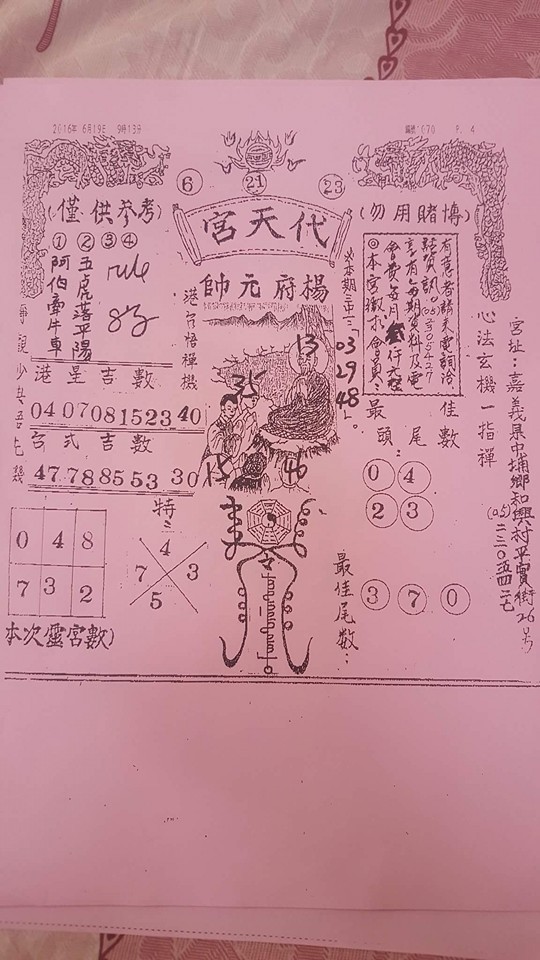 2016年 6月19日 9時13分
編號:070 P. 4
6 21 23
(僅供參考)
代天宮
(勿用賭博)
楊府元帥
① ② ③ ④
阿伯牽牛車
五虎落平陽
rule
港台悟禪機
※本期三中三:「03 29 48」。
有意者請來電詢洽
◎本宮徵求會員:
心法玄機一指禪
宮址:嘉義県中埔鄉和興村平實街26号
港星吉數
04 07 08 15 23 40
台式吉數
47 78 85 53 30
13
35
15
46
最佳
頭尾數
0 4
2 3
特:
0 4 8
7 3 2
4
7 3
5
令
最佳尾數:
3 7 0
本次靈宮數)